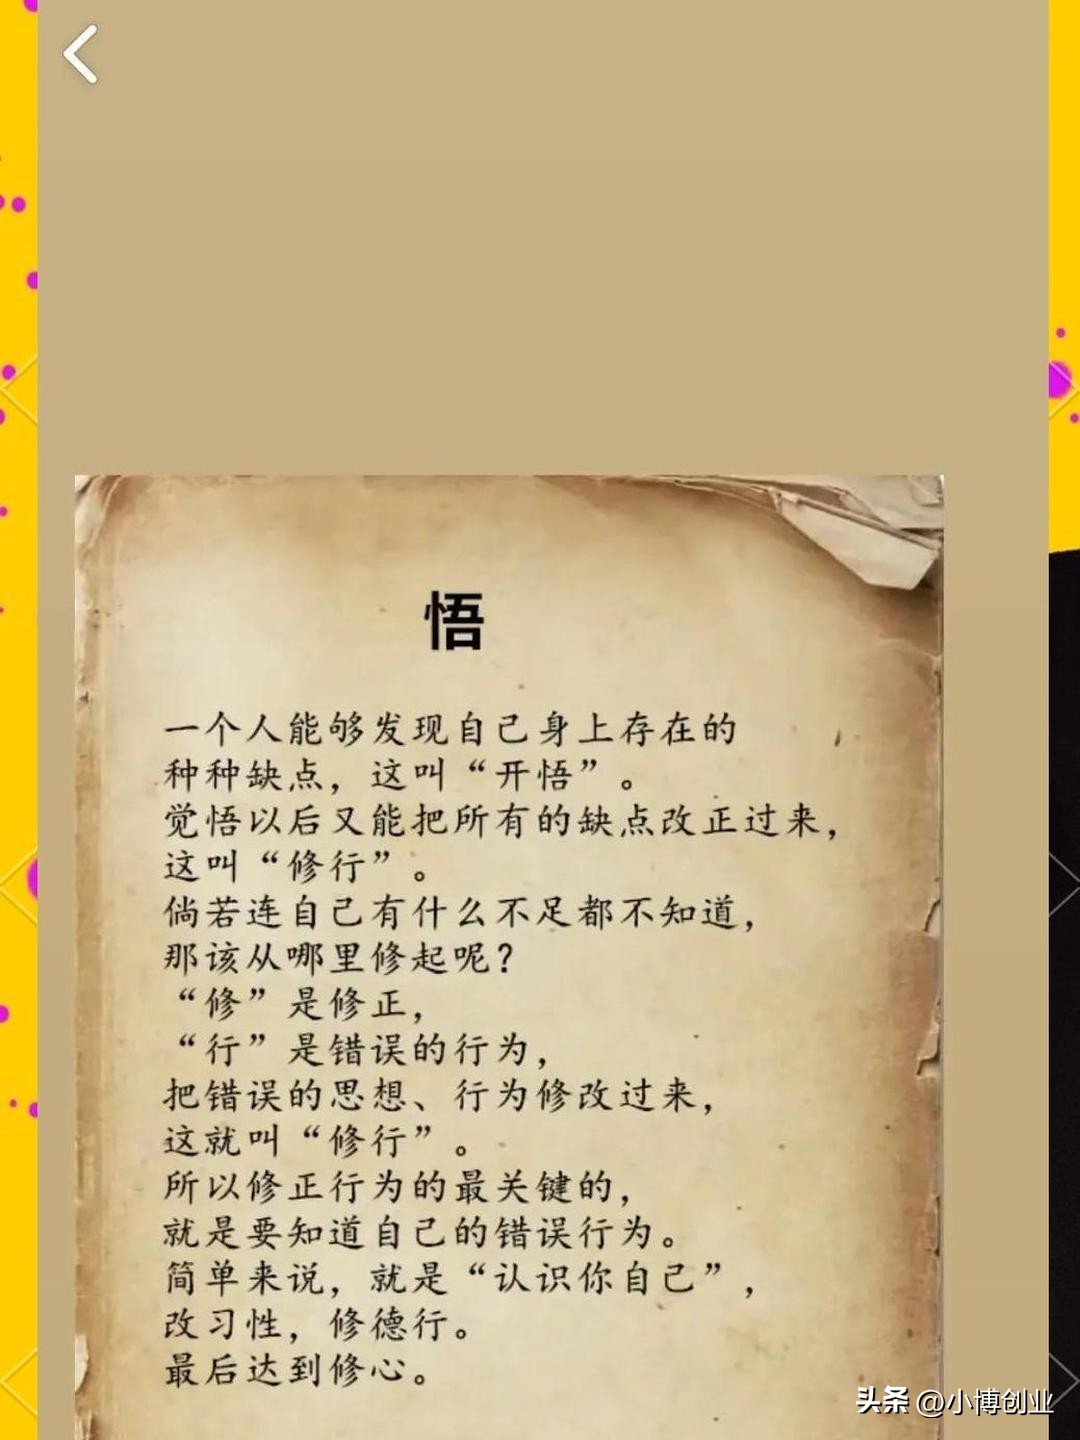 悟
一个人能够发现自己身上存在的
种种缺点，这叫“开悟”。
觉悟以后又能把所有的缺点改正过来，
这叫“修行”。
倘若连自己有什么不足都不知道，
那该从哪里修起呢？
“修”是修正，
“行”是错误的行为，
把错误的思想、行为修改过来，
这就叫“修行”。
所以修正行为的最关键的，
就是要知道自己的错误行为。
简单来说，就是“认识你自己”，
改习性，修德行。
最后达到修心。
头条 @小博创业